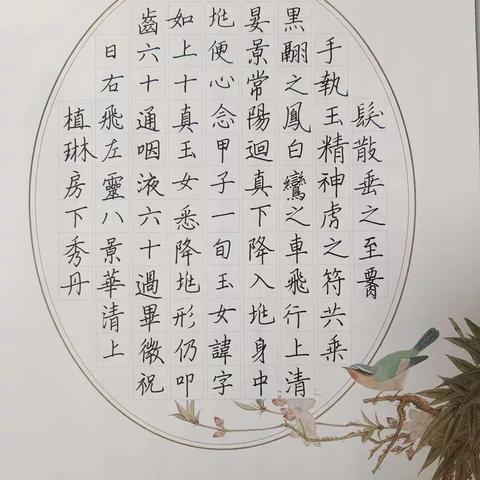 髮散垂之至膂
手執玉精神虎之符共乘
黑翮之鳳白鸞之車飛行上清
晏景常陽迴真下降入兆身中
兆便心念甲子一旬玉女諱字
如上十真玉女悉降兆形仍叩
齒六十通咽液六十過畢微祝
日右飛左靈八景華清上
植琳房下秀丹